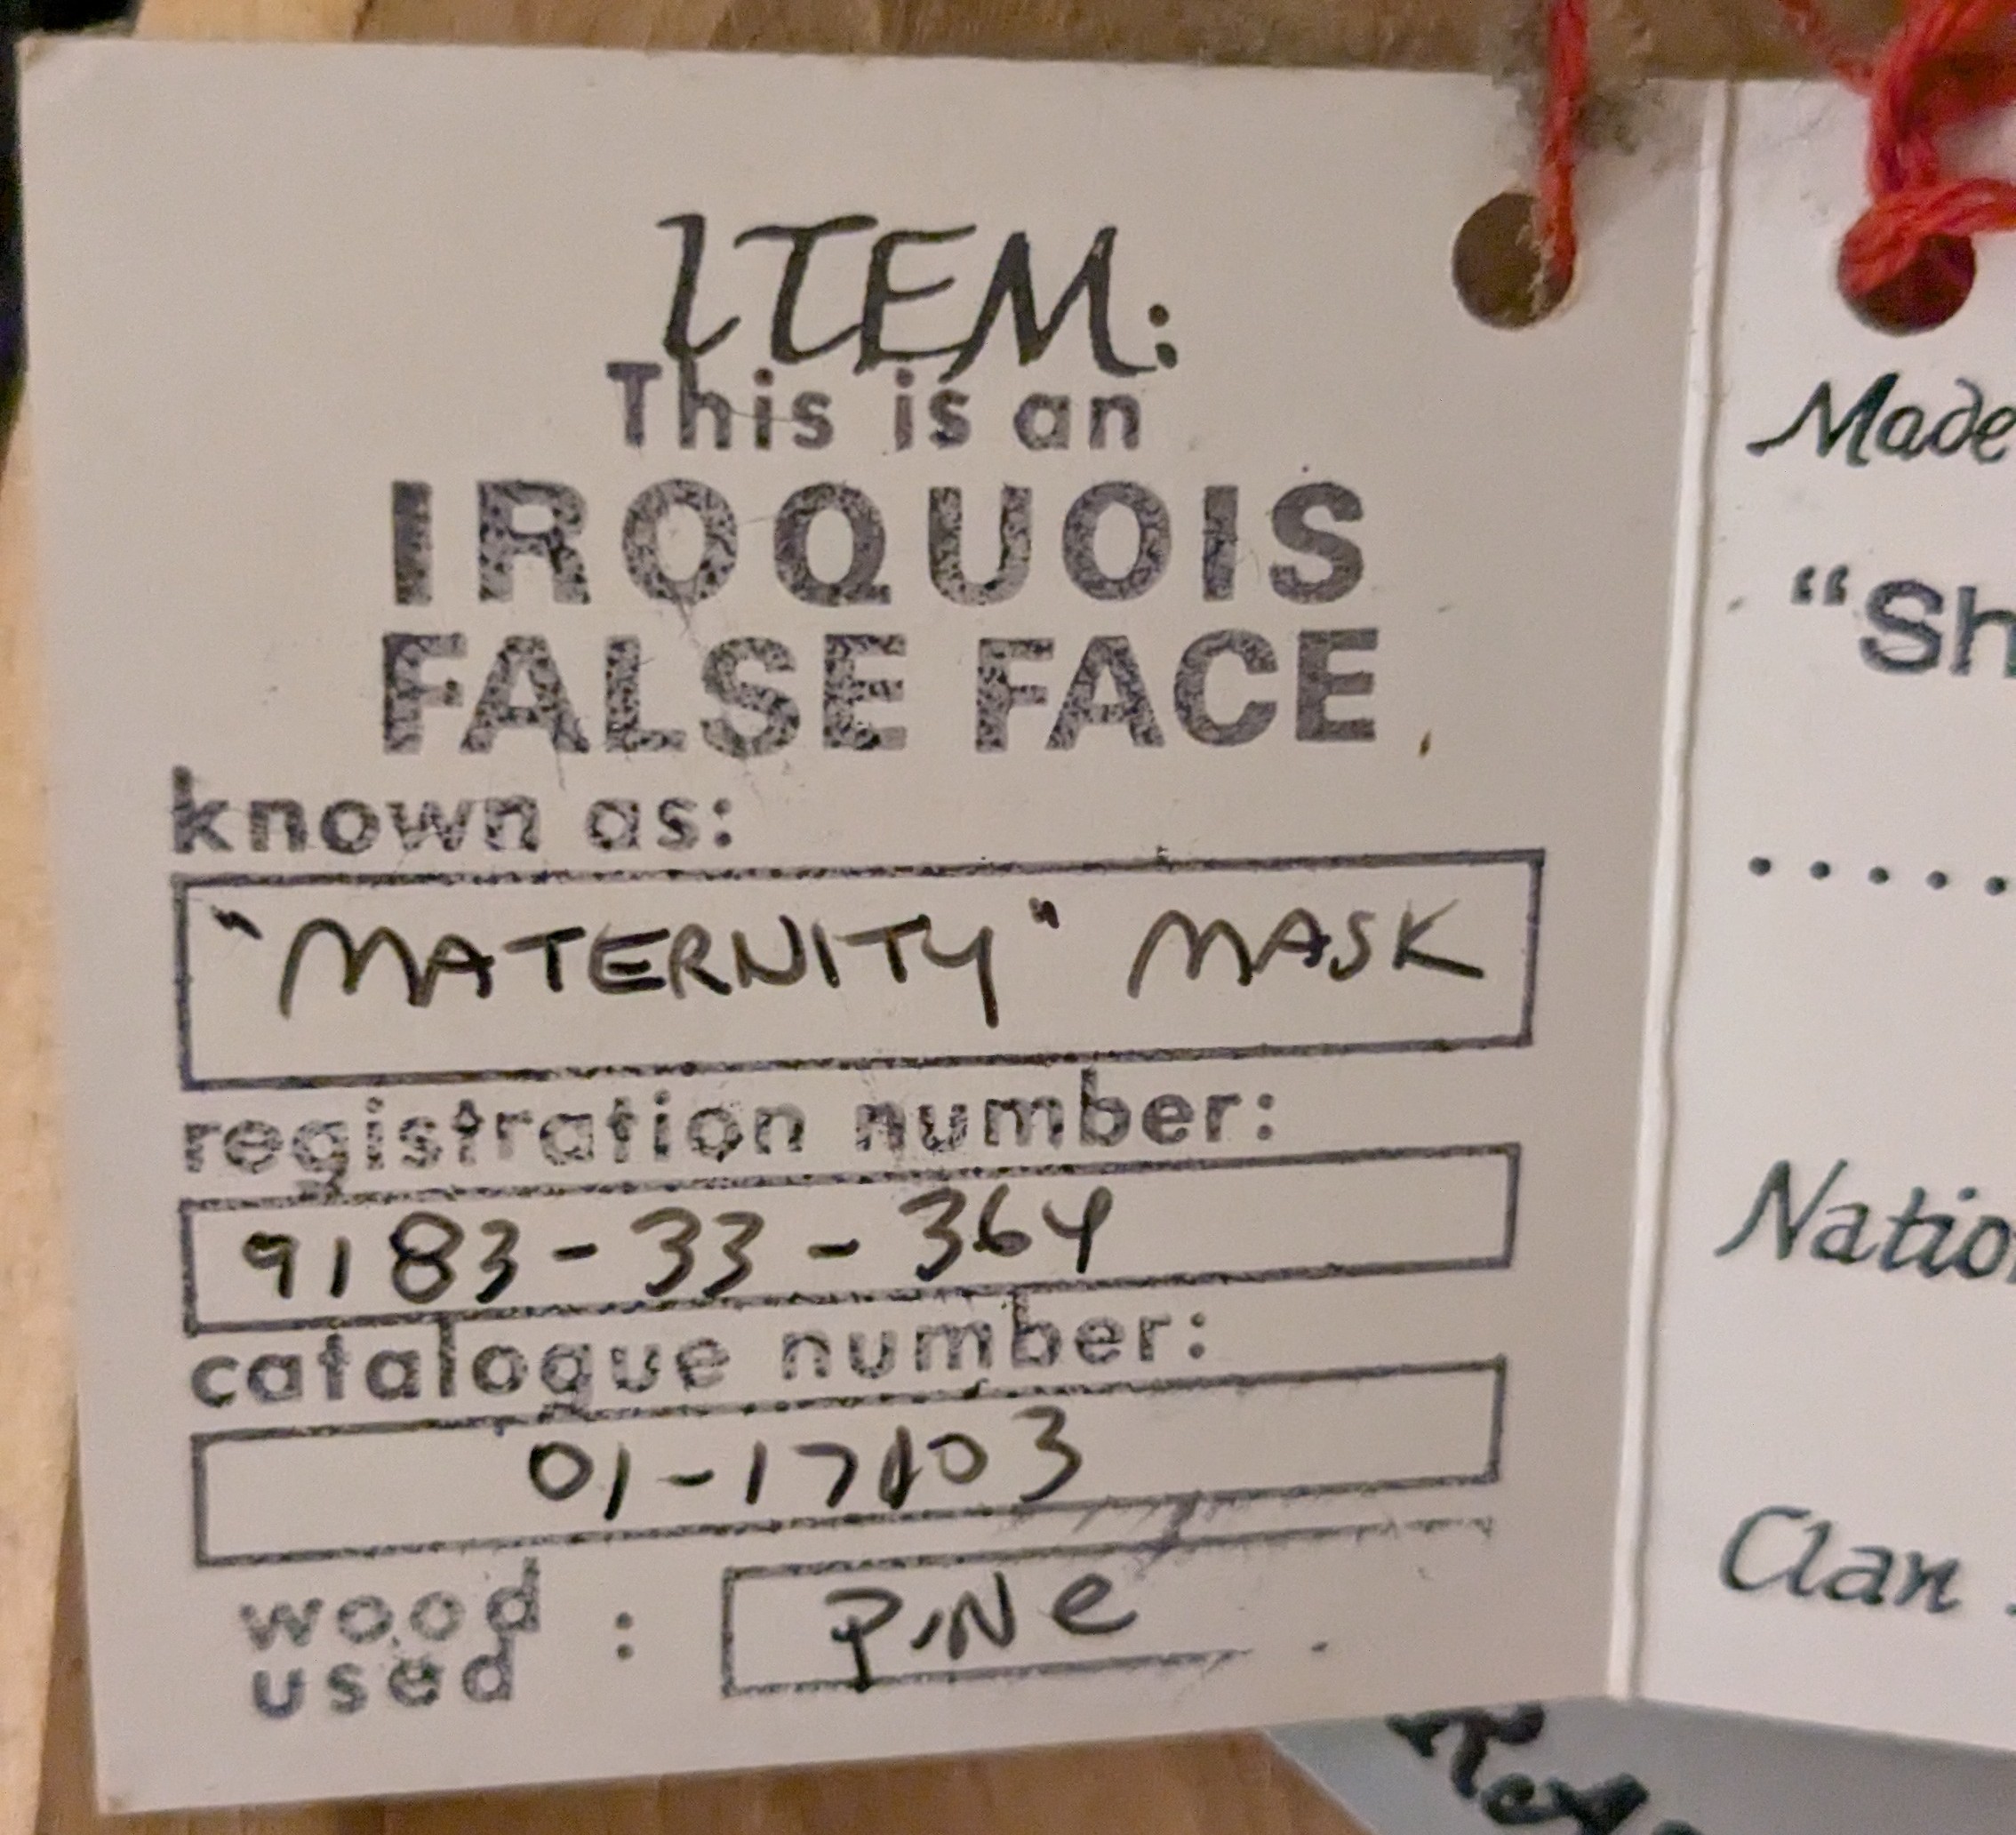 ITEM:
This is an
IROQUOIS
FALSE FACE
known as:
"MATERNITY" MASK
registration number:
9183-33-364
catalogue number:
01-17103
wood
used :
PINe
Made
"Sh
.....
Natio
Clan